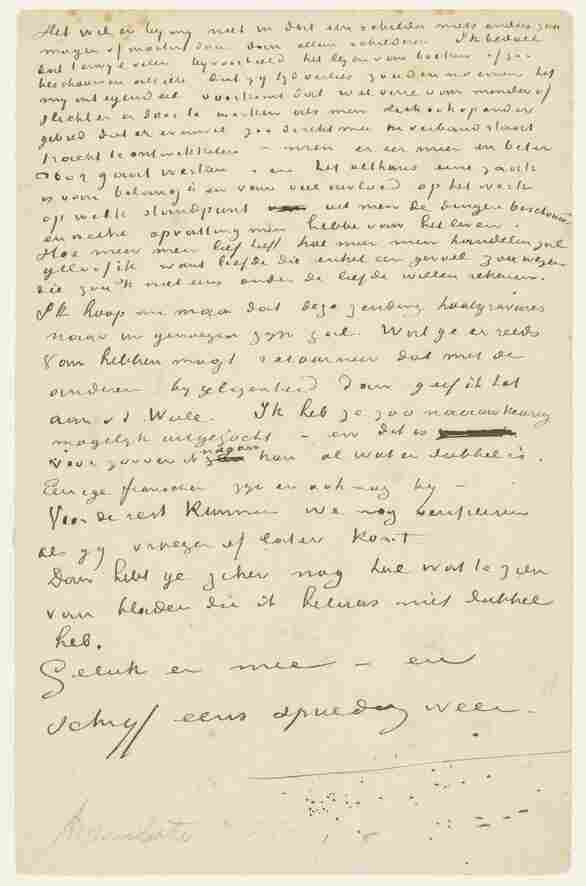 Het wil er by my niet in dat een schilder niets anders zou
mogen of moeten doen dan alleen schilderen. Ik bedoel
dat terwyl velen byvoorbeeld het lezen van boeken of zoo
beschouwen als iets dat zy tydverlies zouden noemen het
my integendeel voorkomt dat wel verre van minder of
slechter er door te werken als men zich op ander
gebied dat er evenwel zoo direkt mee in verband staat
tracht te ontwikkelen – men er eer meer en beter
door gaat werken – en het althans eene zaak
is van belang is en van veel invloed op het werk
op welk standpunt uit men de dingen beschouwt
en welke opvatting men hebbe van het leven.
Hoe meer men lief heeft hoe meer men handelen zal
geloof ik want liefde die enkel een gevoel zou wezen
die zou ik niet eens onder de liefde willen rekenen.
Ik hoop maar dat deze zending houtgravures
naar uw genoegen zyn zal. Wat ge er reeds
van hebben mogt retourneer dat met de
anderen by gelegenheid dan geef ik het
aan v.d. Weele. Ik heb ze zoo naauwkeurig
mogelyk uitgezocht – en dit is
voor zoover ik nagaan kan al wat er dubbel is.
Eenige franschen zyn er ook nog by –
Voor de rest kunnen we nog verifieren
als gy vroeger of later komt
Dan hebt ge zeker nog heel wat te zien
van bladen die ik helaas niet dubbel
heb.
Geluk er mee – en
schryf eens spoedig weer –